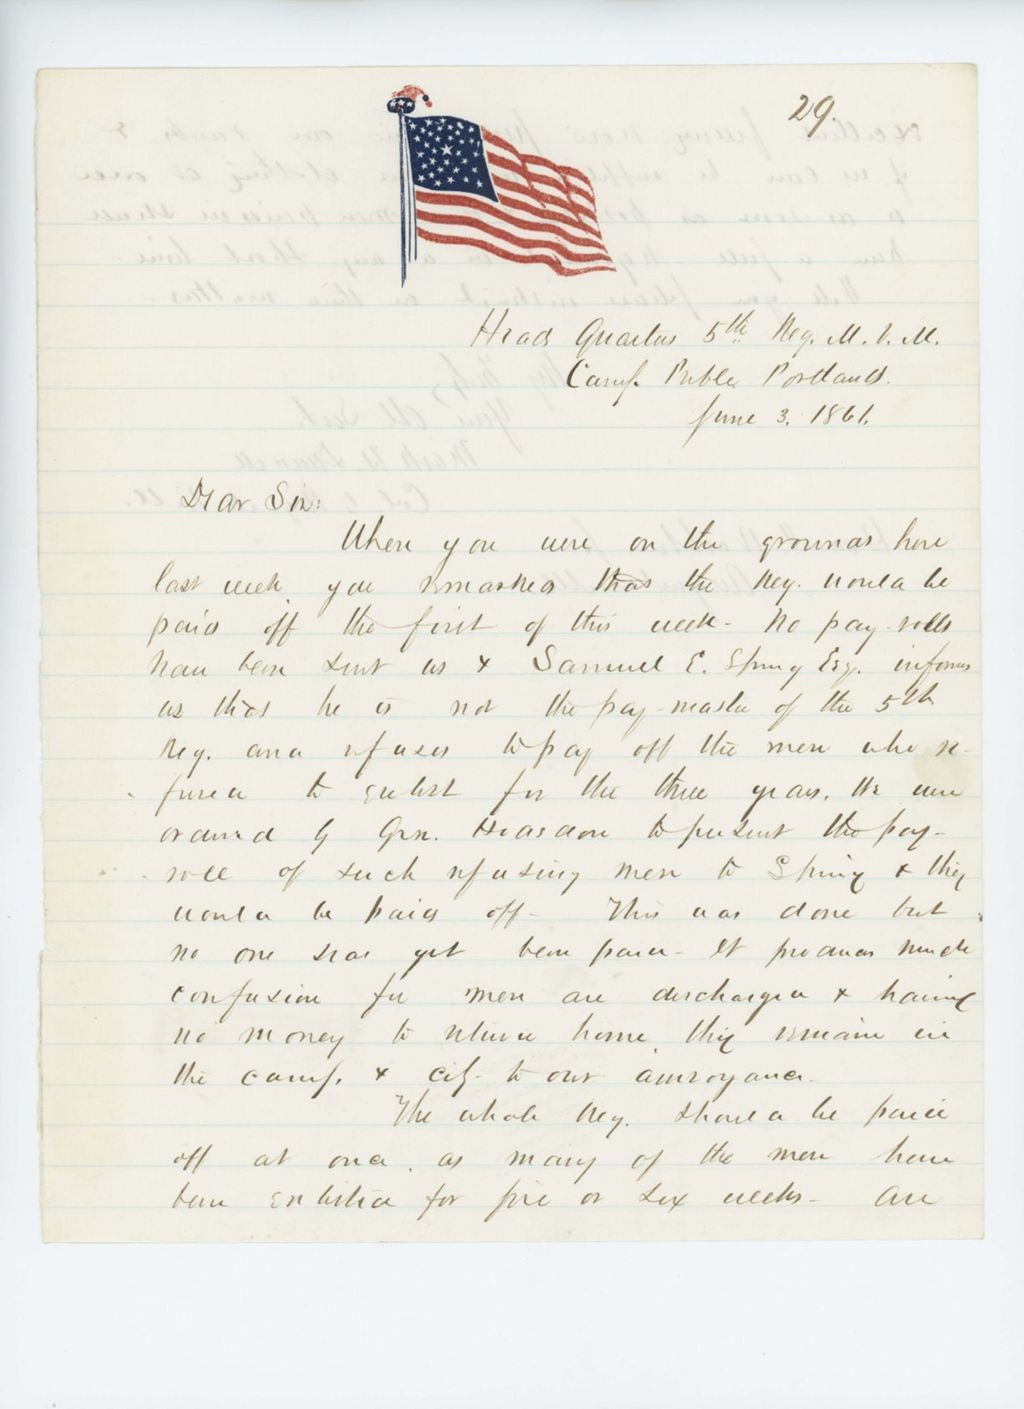 29.
Head Quarters 5th Reg. M. V. M.
Camp Preble Portland.
June 3. 1861.
Dear Sir:
When you were on the grounds here
last week, you remarked that the Reg. would be
paid off the first of this week - No pay-rolls
have been sent us & Samuel E. Spring Esq. informs
us that he is not the pay-master of the 5th
Reg. and refuses to pay off the men who re-
fused to enlist for the three years. We were
ordered by Gen. Hodsdon to present the pay-
roll of such refusing men to Spring & they
would be paid off - This was done but
no one has yet been paid - It produces much
confusion for men are discharged & having
no money to return home, they remain in
the camp. & city - to our annoyance -
The whole Reg. should be paid
off at once, as many of the men have
been enlisted for five or six weeks - are